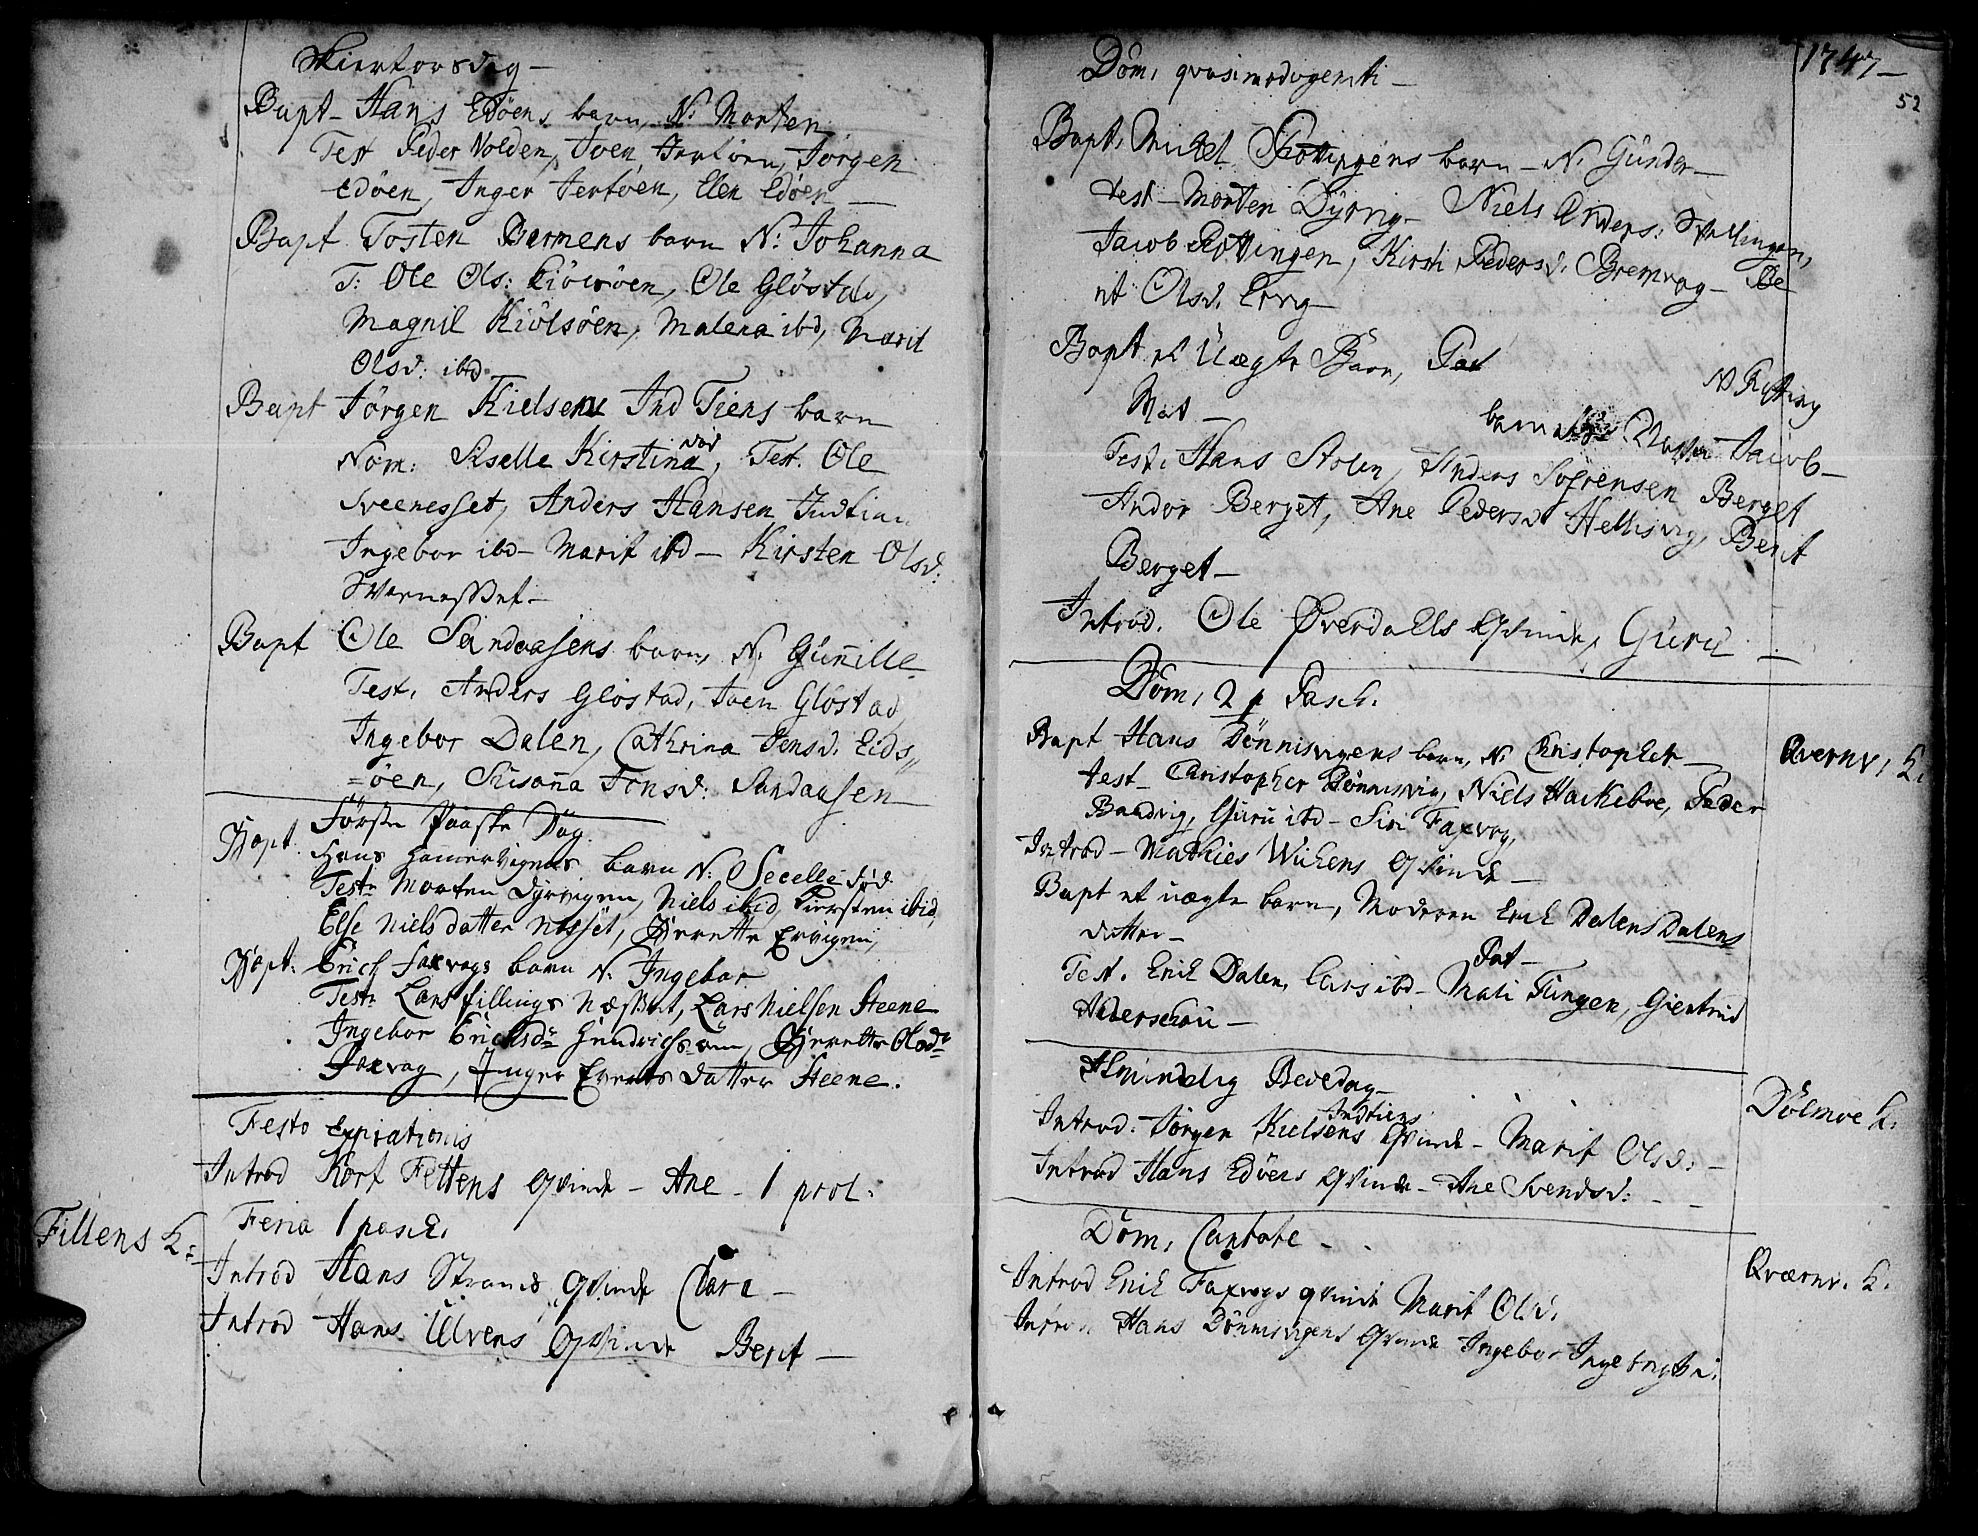 Skiertorsdag —
Bapt — Hans Edøens barn, N: Morten
Test Peder Volden, Iver Jertøen, Jørgen
Edøen, Inger Jertøen, Elen Edøen —
Bapt Tosten Bermens barn N: Johanna
T: Ole Ols: Kiølsøen, Ole Gløstad,
Magnil Kiølsøen, Malena ibd, Marit
Olsd: ibd.
Bapt Jørgen Kielsens Ind Tiens barn
Nom: Siselle Kirstina, Test. Ole
Sveenesset, Anders Hansen Indtien
Ingebor ibd — Marit ibd — Kirsten Olsd:
Bapt Ole Sandaasens barn, N. Gunille
Test. Anders Gløstad, Joen Gløstad
Ingebor Dalen, Cathrina Jensd: Eids
=øen, Susanna Jonsd: Sandaasen —
Første Paaske Dag.
Bapt. Hans Hamervigens barn N: Secelle
Test: Morten Dyrvigen, Niels ibid, Kiersten ibid,
Else Niels datter Nesset, Berette Ervigen,
Bapt: Erich Faxvogs barn N. Ingebor
Test: Lars Fillings Næsset, Lars Nielsen Steene
Ingebor Erichsd:, Berette Olsd:
Faxvog, Inger Everts datter Steene.
Festo Expiationis
Introd Kort Fettens Qvinde — Ane — 1 prol.
Fillens K:
Feria 1 pasch.
Introd Hans Strands Qvinde Clara —
Introd Hans Ulvens Qvinde Berit —
1747 —
52
Dom, qvasimodogeniti —
Bapt, Mikel Rottingens barn — N. Gunder —
Test — Morten Dyrvig — Niels Anders:
Jacob Rottingen, Kirsti Pedersd. Bremvog — Be
rit Olsd. Ervig —
Bapt et Uægte Barn, Pat
Mat —
barnets Jacob —
Test. Hans Stolen, Anders Sofrensen Berget
Andor Berget, Ane Pedersd Hellisvig, Berit
Berget —
Introd. Ole Øverdaells Qvinde, Guru —
Dom, 2 p Pasch.
Qvernv, K.
Bapt Hans Dønnisvigens barn, N. Christopher —
Test — Christopher Dønnisvig, Niels Hackeboe, Peder
Bandvig, Guru ibd — Siri Faxvog,
Introd — Mathies Wikens Qvinde —
Bapt et uægte barn, Moderen Erich Dalens Dalens
datter —
Pat —
Test. Erich Dalen, Lars ibd — Mali Tungen, Giertrud
Almindelig Bededag —
Dolmoe K.
Indtiens
Introd. Jørgen Kielsens Qvinde — Marit Olsd: —
Introd Hans Edøens Qvinde — Ane Svendsd: —
Dom, Cantate —
Qværnv. K.
Introd Erich Faxvogs qvinde Marit Olsd.
Introd Hans Dønnisvigens Qvinde Ingebor